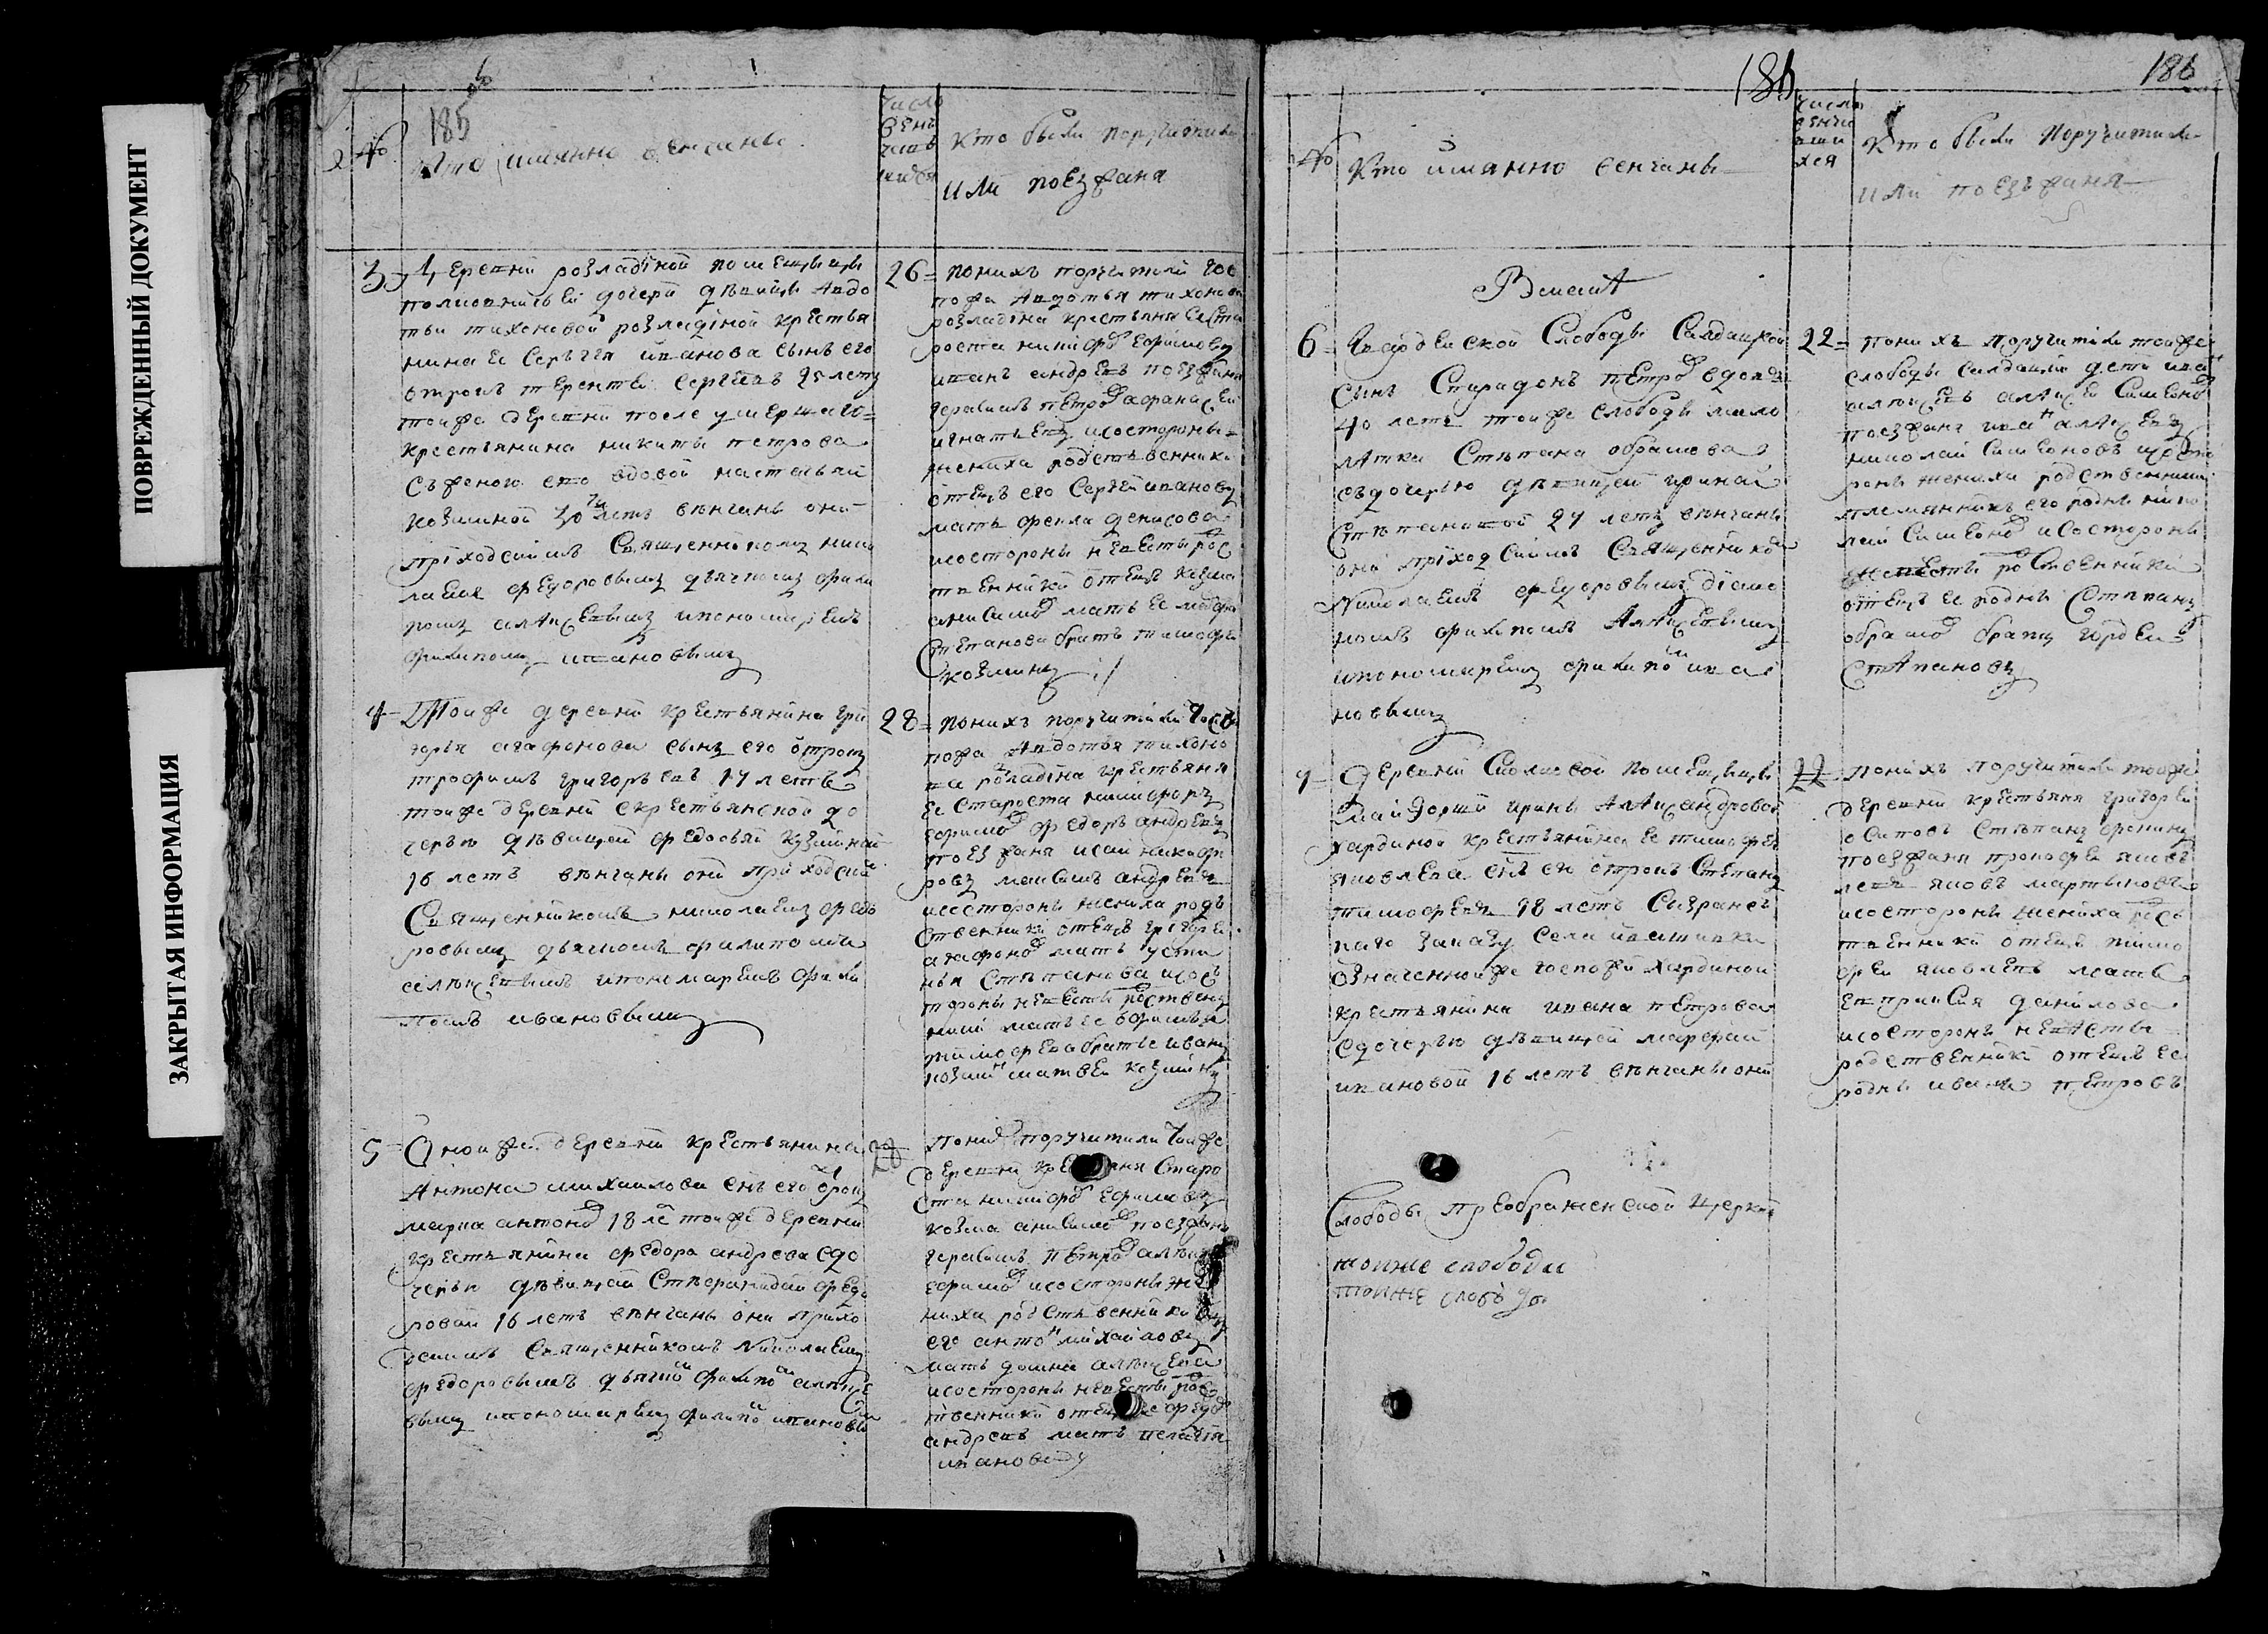 ПОВРЕЖДЕННЫЙ ДОКУМЕНТ
ЗАКРЫТАЯ ИНФОРМАЦИЯ
185
№
Кто имянно венчаны
число
венч
кто были поручители
или поезжаня
3
деревни розладiной помещицы
дочери девицы Авдо
тьи тихоновой розладiной крестья
нина ее Сергея иванова сынъ его
отрокъ терентеи Сергеевъ 25 летъ
тоиже деревни после умершаго
крестьянина никиты петрова
с женою ево вдовой настасьей
козминой 30 летъ венчаны они
приходскимъ Священникомъ нико
лаемъ федоровымъ дьячкомъ фили
помъ алексеевымъ ипономаремъ
филипомъ ивановымъ
26
поних поручители гос
пожа Авдотья тихонова
розладiна крестьяня ее ста
роста никифоръ ефимовъ
иванъ андреевъ поезжаня
герасимъ петровъ афанасеи
игнатьевъ исостороны
жениха родственники
отецъ его Сергеи ивановъ
мать фекла денисова
исостороны невесты род
твенники отецъ козма
анисимовъ мать ее
Степанова братъ тимофеи
козминъ
4
Тоиже деревни крестьянина гри
горья агафонова сынъ его отрокъ
трофимъ григорьевъ 17 летъ
тоиже деревни с крестьянской до
черью девицей федосьей кузминой
16 летъ венчаны они приходским
Священникомъ николаемъ федо
ровымъ дьячкомъ филипомъ
алексеевымъ ипономаремъ фили
помъ ивановымъ
28
поних поручители Госпо
пожа Авдотья тихоно
ва розладiна крестьяня
ее староста никифоръ
ефимовъ федоръ андреевъ
поезжаня исаи никифо
ровъ максимъ андреевъ
исостороны жениха родъ
ственники отецъ григореи
агафоновъ мать усти
нья Степанова исос
тороны невесты родствен
ники мать ее ефимья
тимофеева братье иванъ
козминъ матвеи козминъ
5
Оноиже деревни крестьянина
Антона михаилова снъ его отрокъ
марка антоновъ 18 ле тоиже деревни
крестьянина федора андреева здо
черью девицей Степанидои федо
ровой 16 летъ венчаны они прихо
дскимъ Священникомъ Николаемъ
федоровымъ дьячкомъ филипомъ алексее
вымъ ипономаремъ филипомъ ивановым
28
поних поручители тоиже
деревни крестьяня старо
ста никифоръ Ефимовъ
козма анисимовъ поезжаня
герасимъ петровъ
ефимовъ исостороны же
ниха родственники отец
его антонъ михаиловъ
мать домна алексеева
исостороны невесты родс
твенники отецъ ее федоръ
андреевъ мать пелагея
иванова
186
186
№
Кто имянно венчаны
числа
венча
вши
хся
Кто были Поручители
или поезжаня
6
Слободы Салдацкой
сынъ Спиридонъ петровъ вдовецъ
40 летъ тоиже слободы мало
летка Степана абрамова
съдочерью девицей ириной
Степановой 27 летъ венчаны
они приходскимъ Священникомъ
Николаемъ федоровымъ дiячко
комъ филипомъ Алексеевымъ
ипономаремъ филипомъ ива
новымъ
22
поних поручители тоиже
слободы салдацки дети иванъ
алексеевъ алексеи Симеоновъ
поезжаня иванъ алексеевъ
николаи Симеоновъ исосто
роны жениха родственники
племянникъ его родны нико
лаи Симеоновъ исостороны
невесты родственники
отецъ ее родны Степанъ
абрамовъ братъ гордеи
Степановъ
7
деревни помещицы
маиорши ирины Александровой
хардиной крестьянина ее тимофея
яковлева снъ ей отрокъ Степанъ
тимофеевъ 18 летъ Сизранс
каго Села ивашивки
означеннойже госпожи хардиной
крестьянина ивана петрова
сдочерью девицей марфой
ивановой 16 летъ венчаны они
22
поних поручители тоиже
деревни крестьяня григореи
осиповъ Степанъ фокинъ
поезжаня прокофеи яков
левъ яковъ мартыновъ
исостороны жениха родс
твенники отецъ тимо
феи яковлевъ мать
епраксия данилова
исостороны невесты
родственники отецъ ее
родны иванъ петровъ
Слободы преображенской церкви
тоиже слободы
тоиже слободы